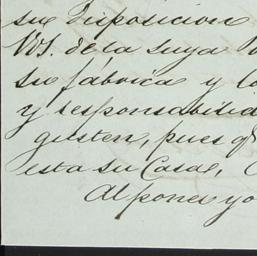 su disposicion
VS. de la suya
su fábrica y
y responsabilida
gusten, pues q
esta su Casa,
Al poner yo